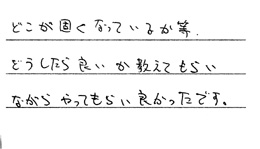 どこが固くなっているか等、
どうしたら良いか教えてもらい
ながらやってもらい良かったです。